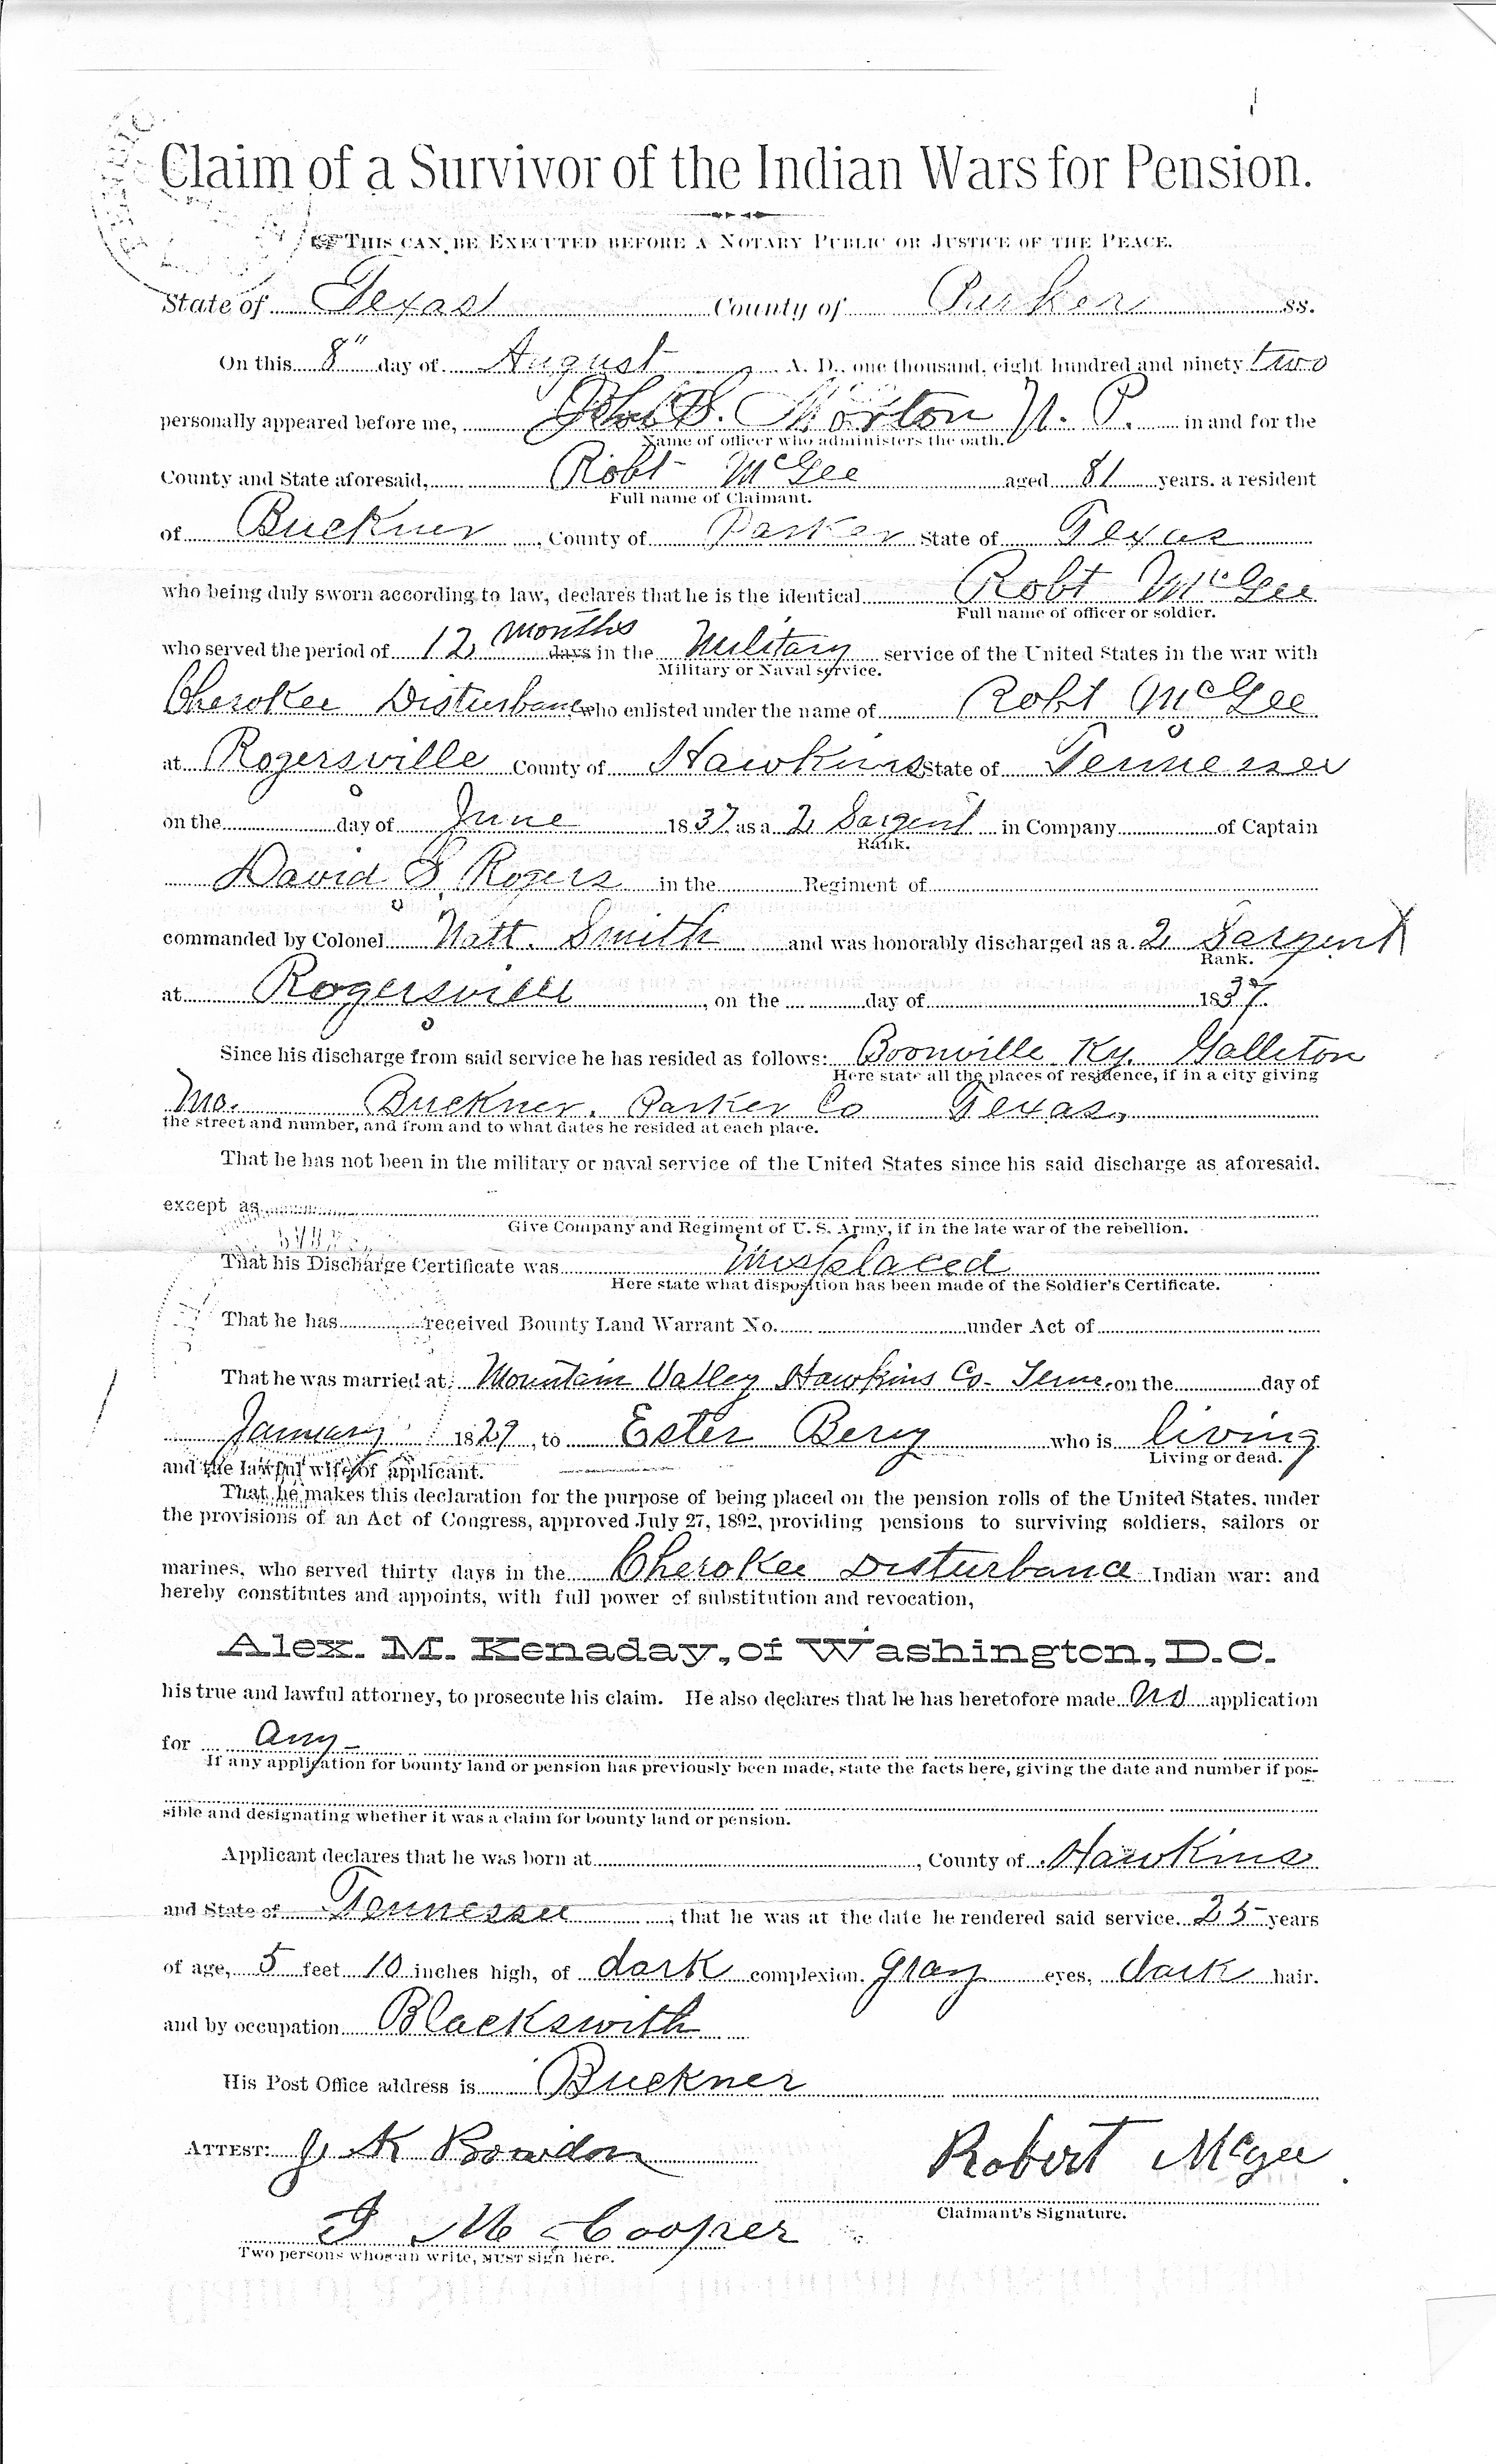 Claim of a Survivor of the Indian Wars for Pension.
THIS CAN BE EXECUTED BEFORE A NOTARY PUBLIC OR JUSTICE OF THE PEACE.
State of Texas County of Parker ss.
On this 8" day of August A. D., one thousand, eight hundred and ninety two
personally appeared before me, Morton N. P. in and for the
Name of officer who administers the oath.
County and State aforesaid, Robt McGee aged 81 years. a resident
Full name of Claimant.
of Buckner, County of Parker State of Texas
who being duly sworn according to law, declares that he is the identical Robt McGee
Full name of officer or soldier.
months
who served the period of 12 days in the Military service of the United States in the war with
Military or Naval service.
Cherokee Disturbance who enlisted under the name of Robt McGee
at Rogersville County of Hawkins State of Tennessee
on the day of June 1837 as a 2 Sargent in Company of Captain
Rank.
David S Rogers in the Regiment of
commanded by Colonel Natt. Smith and was honorably discharged as a 2 Sargent
Rank.
at Rogersville, on the day of 1837.
Since his discharge from said service he has resided as follows: Boonville Ky. Galleton
Here state all the places of residence, if in a city giving
Mo. Buckner, Parker Co Texas,
the street and number, and from and to what dates he resided at each place.
That he has not been in the military or naval service of the United States since his said discharge as aforesaid,
except as
Give Company and Regiment of U. S. Army, if in the late war of the rebellion.
That his Discharge Certificate was Misplaced
Here state what disposition has been made of the Soldier's Certificate.
That he has received Bounty Land Warrant No. under Act of
That he was married at Mountain Valley Hawkins Co. Tenn. on the day of
January 1829, to Ester Berry who is living
Living or dead.
and the lawful wife of applicant.
That he makes this declaration for the purpose of being placed on the pension rolls of the United States, under
the provisions of an Act of Congress, approved July 27, 1892, providing pensions to surviving soldiers, sailors or
marines, who served thirty days in the Cherokee Disturbance Indian war: and
hereby constitutes and appoints, with full power of substitution and revocation,
Alex. M. Kenaday, of Washington, D.C.
his true and lawful attorney, to prosecute his claim. He also declares that he has heretofore made no application
for any
If any application for bounty land or pension has previously been made, state the facts here, giving the date and number if pos-
sible and designating whether it was a claim for bounty land or pension.
Applicant declares that he was born at, County of Hawkins
and State of Tennessee, that he was at the date he rendered said service. 25 years
of age, 5 feet 10 inches high, of dark complexion, gray eyes, dark hair.
and by occupation Blacksmith
His Post Office address is Buckner
ATTEST: J. K Bowdon Robert McGee
Claimant's Signature.
J M Cooper
Two persons who can write, MUST sign here.